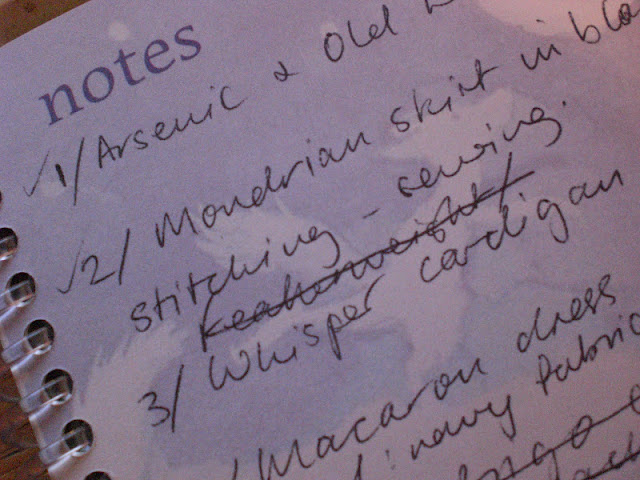 notes
✓1/ Arsenic & Old
✓2/ Mondrian skirt in
stitching - sewing.
featherweight/
3/ Whisper cardigan
/ Macaron dress
: navy fabric